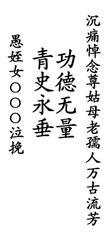 沉痛悼念尊姑母老孺人万古流芳
功德无量
青史永垂
愚姪女〇〇〇泣挽